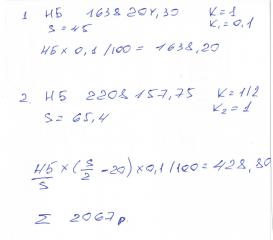 1 НБ 1638204,30 K=1
S=45 K₁=0,1
НБ×0,1/100=1638,20
2. НБ 2208157,75 K=1/2
S=65,4 K₂=1
НБ/S×(S/2-20)×0,1/100=428,80
Σ 2067 р.